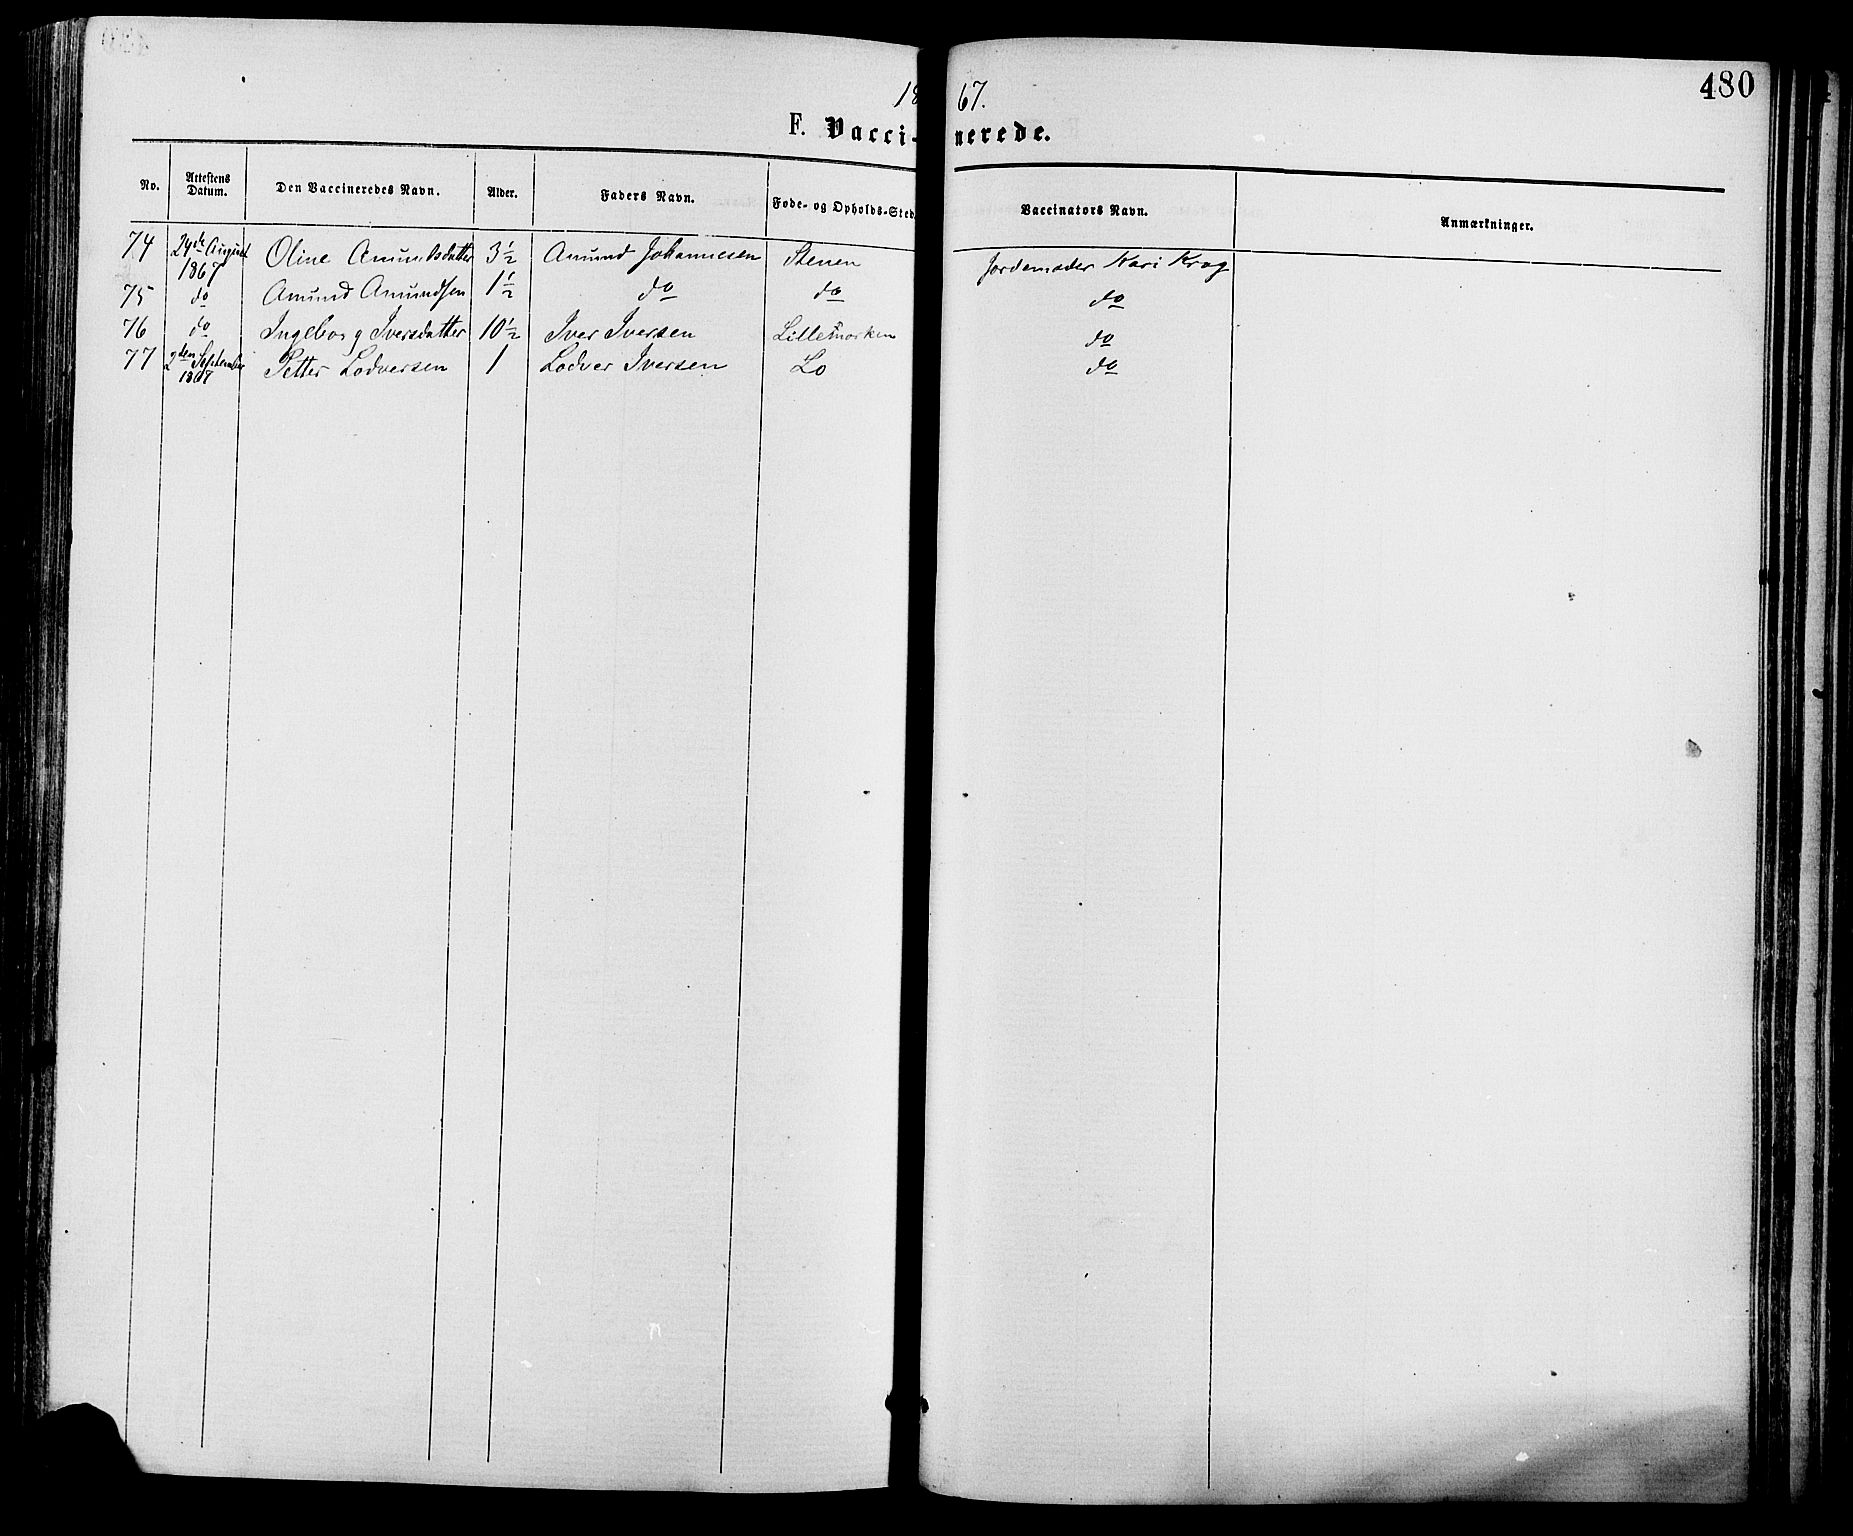 480
1867.
F. Vaccinerede.
No. Attestens Datum. Den Vaccineredes Navn. Alder. Faders Navn. Føde- og Opholds-Sted. Vaccinators Navn. Anmærkninger.
74 24de August 1867 Oline Amundsdatter 3½ Amund Johannesen Stenen Jordemoder Kari Krog
75 do Amund Amundsen 1½ do do do
76 do Ingeborg Iversdatter 10½ Iver Iversen Lillemorken do
77 2den September 1867 Petter Lodversen 1 Lodver Iversen Lo do